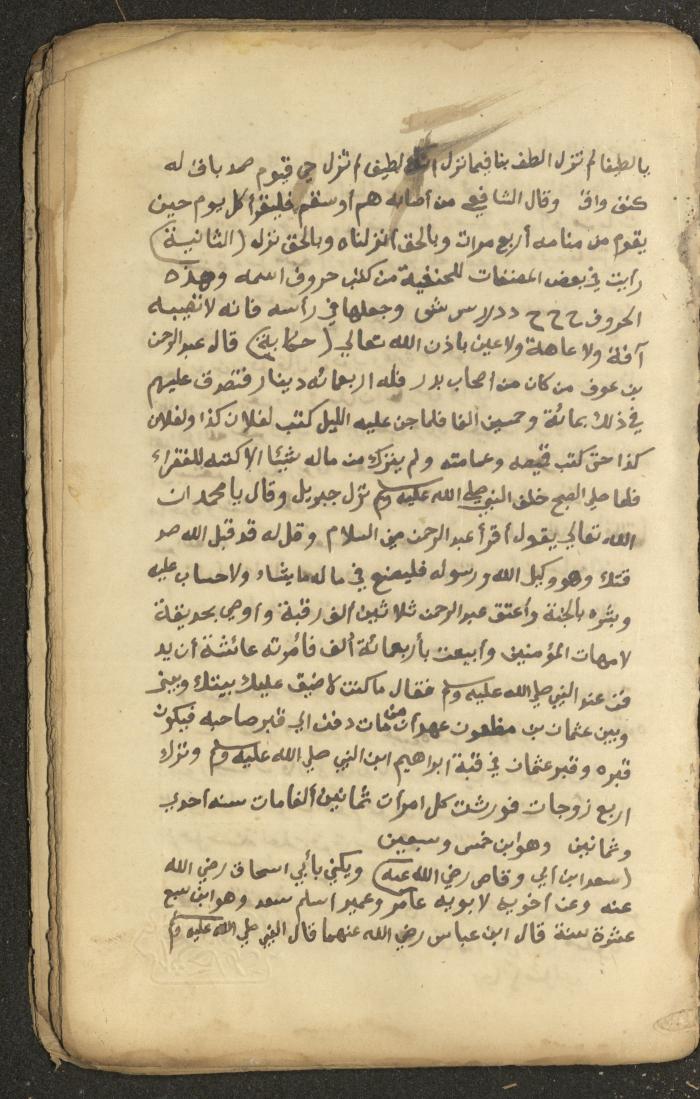 يالطيفا لم تزل الطف بنا فيما نزل انك لطيف لم تزل حي قيوم صمد باق له
كنف واق وقال الشافعي من أصابه هم أو سقم فليقرأ كل يوم حين
يقوم من منامه أربع مرات وبالحق أنزلناه وبالحق نزل (الثانية)
رأيت في بعض المصنفات للحنفية من كتب حروف اسمه وهذه
الحروف ح ح ح د د لا س ش وجعلها في رأسه فانه لا تصيبه
آفة ولا عاهة ولا عين باذن الله تعالي (حكاية) قال عبد الرحمن
بن عوف من كان من اصحاب بدر فله اربعمائه دينار فتصدق عليهم
في ذلك بمائة وخمسين ألفا فلما جن عليه الليل كتب لفلان كذا ولفلان
كذا حتي كتب قميصه وعمامته ولم يترك من ماله شيئا الا كتبه للفقراء
فلما صلي الصبح خلف النبي صلي الله عليه وسلم نزل جبريل وقال يا محمد ان
الله تعالي يقول أقرأ عبد الرحمن مني السلام وقل له قد قبل الله صد
قتك وهو وكيل الله ورسوله فليصنع في ماله ما يشاء ولا حساب عليه
وبشره بالجنة وأعتق عبد الرحمن ثلاثين ألف رقبة وأوصي بحديقة
لامهات المؤمنين وأبيعت بأربعمائة ألف فأمرته عائشة أن يد
فن عند النبي صلي الله عليه وسلم فقال ما كنت لاضيق عليك بيتك وبيني
وبين عثمان بن مظعون عهد أن من مات دفن الي قبر صاحبه فيكون
قبره وقبر عثمان في قبة ابراهيم ابن النبي صلي الله عليه وسلم وترك
اربع زوجات فورثت كل امرأت ثمانين ألفا مات سنه احدي
وثمانين وهو ابن خمس وسبعين
(سعد ابن ابي وقاص رضي الله عنه) ويكني بأبي اسحاق رضي الله
عنه وعن أخويه لابويه عامر وعمير اسلم سعد وهو ابن سبع
عشرة سنة قال ابن عباس رضي الله عنهما قال النبي صلي الله عليه وسلم